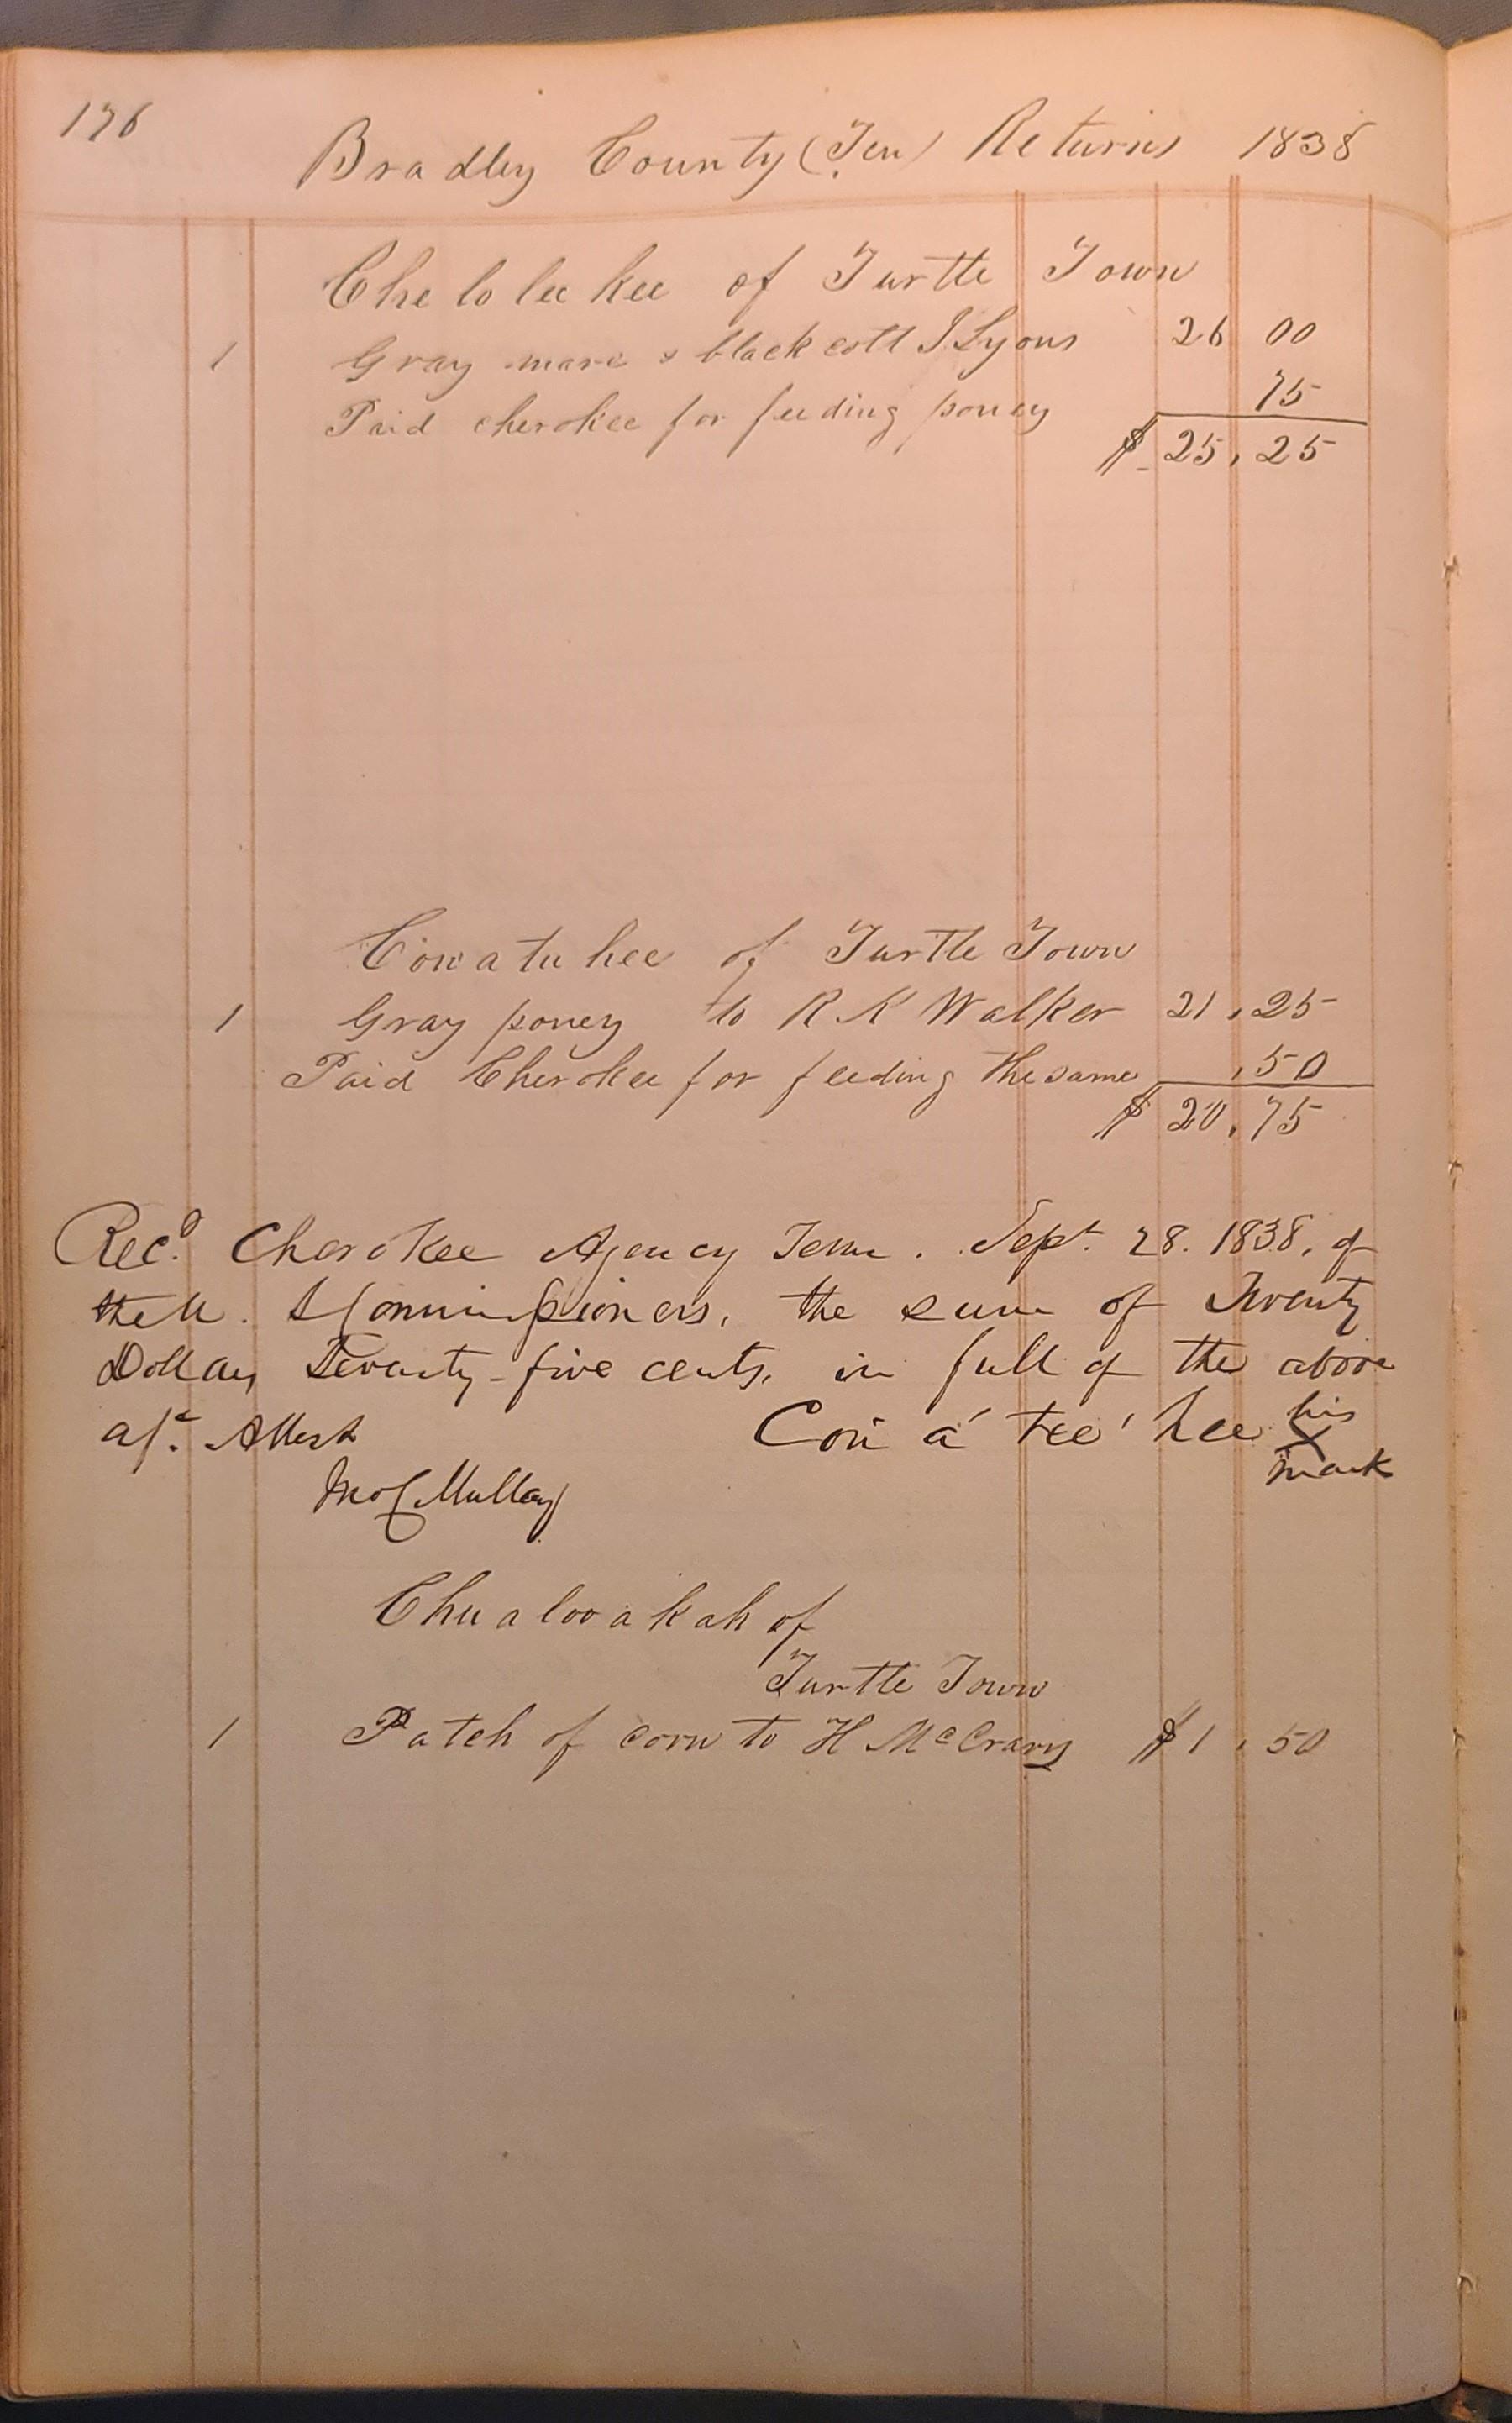 176
Bradley County (Ten) Returns 1838
Che lo lee kee of Turtle Town
1 Gray mare & black colt J Lyons 26 00
Paid cherokee for feeding poney 75
$ 25, 25
Cow a tu hee of Turtle Town
1 Gray poney to R K Walker 21, 25
Paid Cherokee for feeding the same , 50
$ 20, 75
Recd. Cherokee Agency Tenn. Sept. 28. 1838, of
the U. S Commissioners, the sum of Twenty
Dollars Seventy-five cents, in full of the above
a/c. Attest Con a tee hee his X mark
Jno C Mullay
Chu a loo a kah of
Turtle Town
1 Patch of corn to H McCrary $ 1, 50